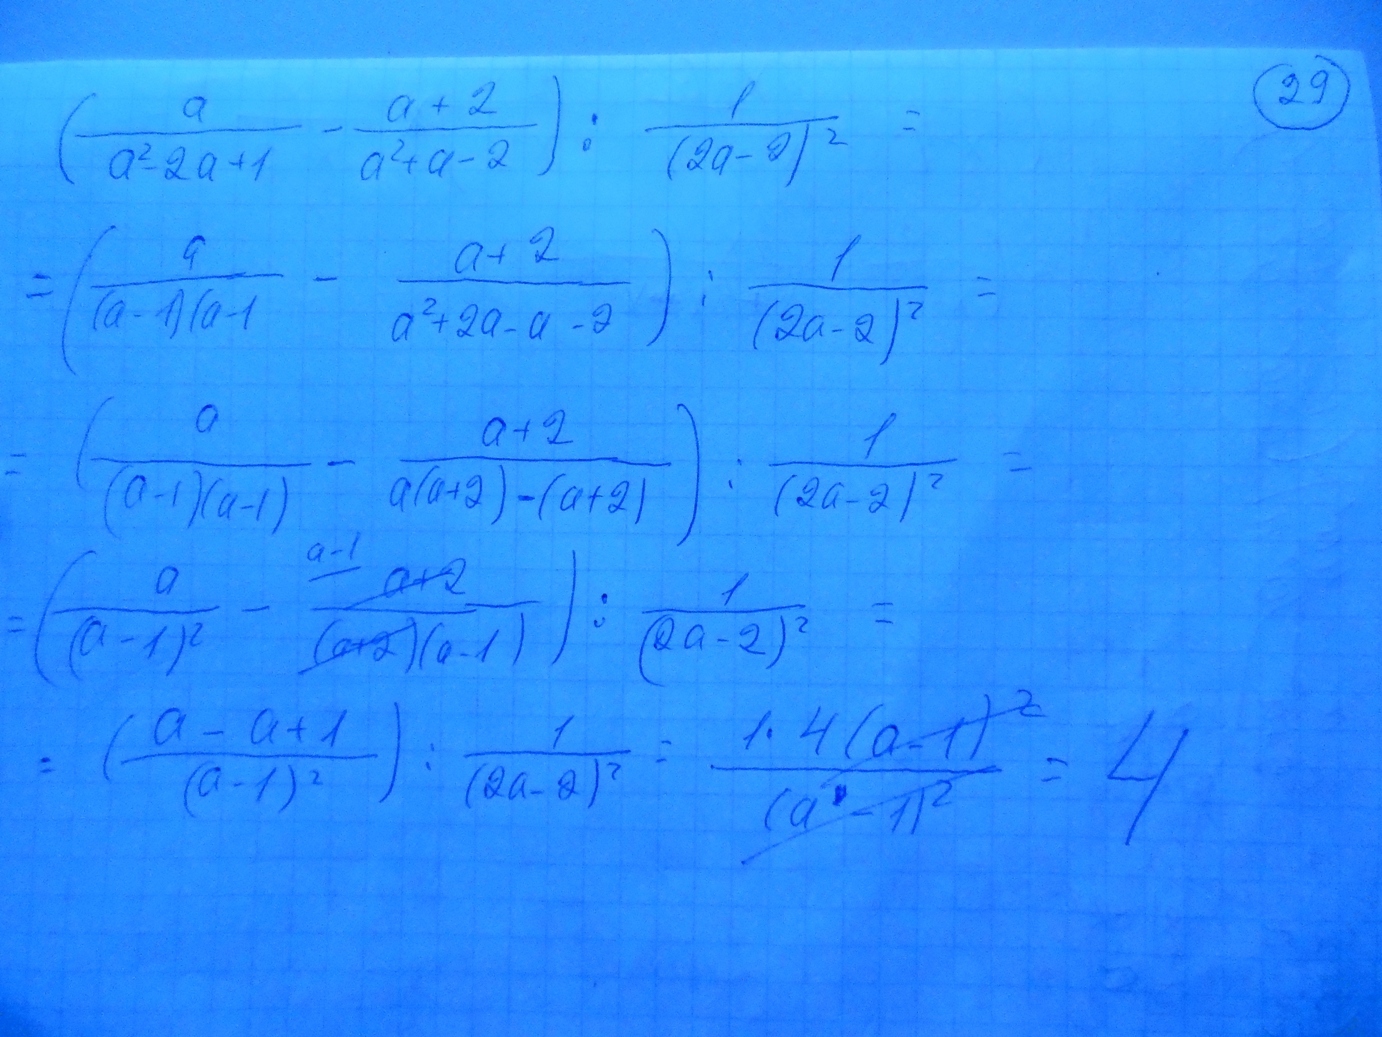 29
( a / (a² - 2a + 1) - (a + 2) / (a² + a - 2) ) : 1 / (2a - 2)² =
= ( a / (a - 1)(a - 1 - (a + 2) / (a² + 2a - a - 2) ) : 1 / (2a - 2)² =
= ( a / (a - 1)(a - 1) - (a + 2) / (a(a + 2) - (a + 2)) ) : 1 / (2a - 2)² =
a - 1
= ( a / (a - 1)² - (a + 2) / (a + 2)(a - 1) ) : 1 / (2a - 2)² =
= ( (a - a + 1) / (a - 1)² ) : 1 / (2a - 2)² = 1 · 4(a - 1)² / (a - 1)² = 4